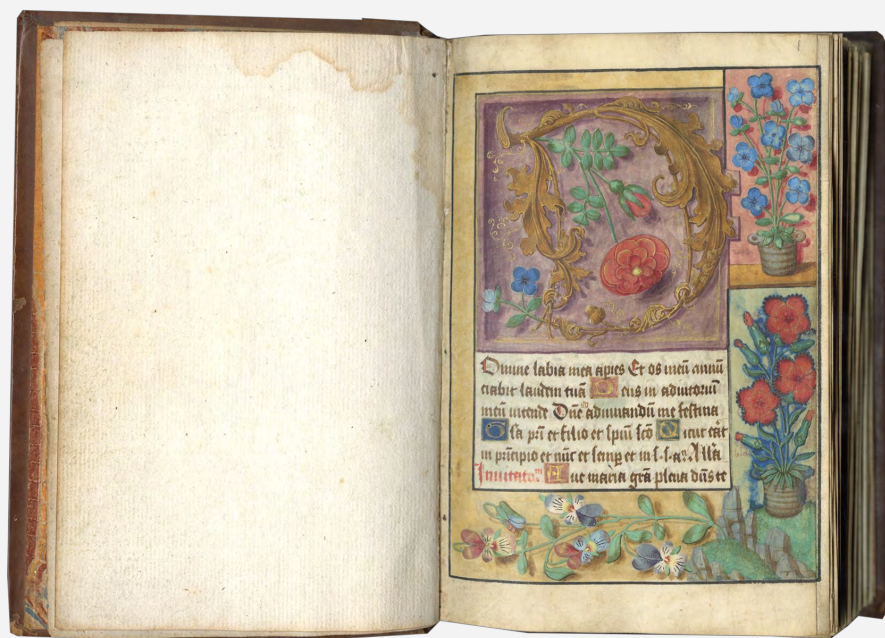 Domine labia mea apies Et os meū annū
ciabit laudem tuā Deus in adiutoriū
meū intende Dn̄e ad iuuandū me festina
Gl̄a pr̄i et filio et spūi scō Sicut erāt
in principio et nūc et semp et in s. s. aꝫ. Alla
Inuitato. Aue maria grā plena dn̄s te